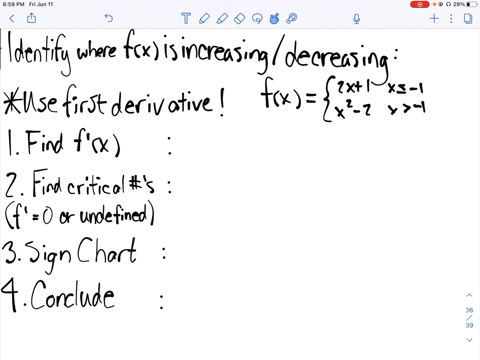 6:59 PM Fri Jun 11
29%
Identify where f(x) is increasing/decreasing:
*Use first derivative!
f(x) = { 2x+1 x≤-1
x²-2 x>-1
1. Find f'(x) :
2. Find critical #'s :
(f'=0 or undefined)
3. Sign Chart :
4. Conclude :
36
/
39